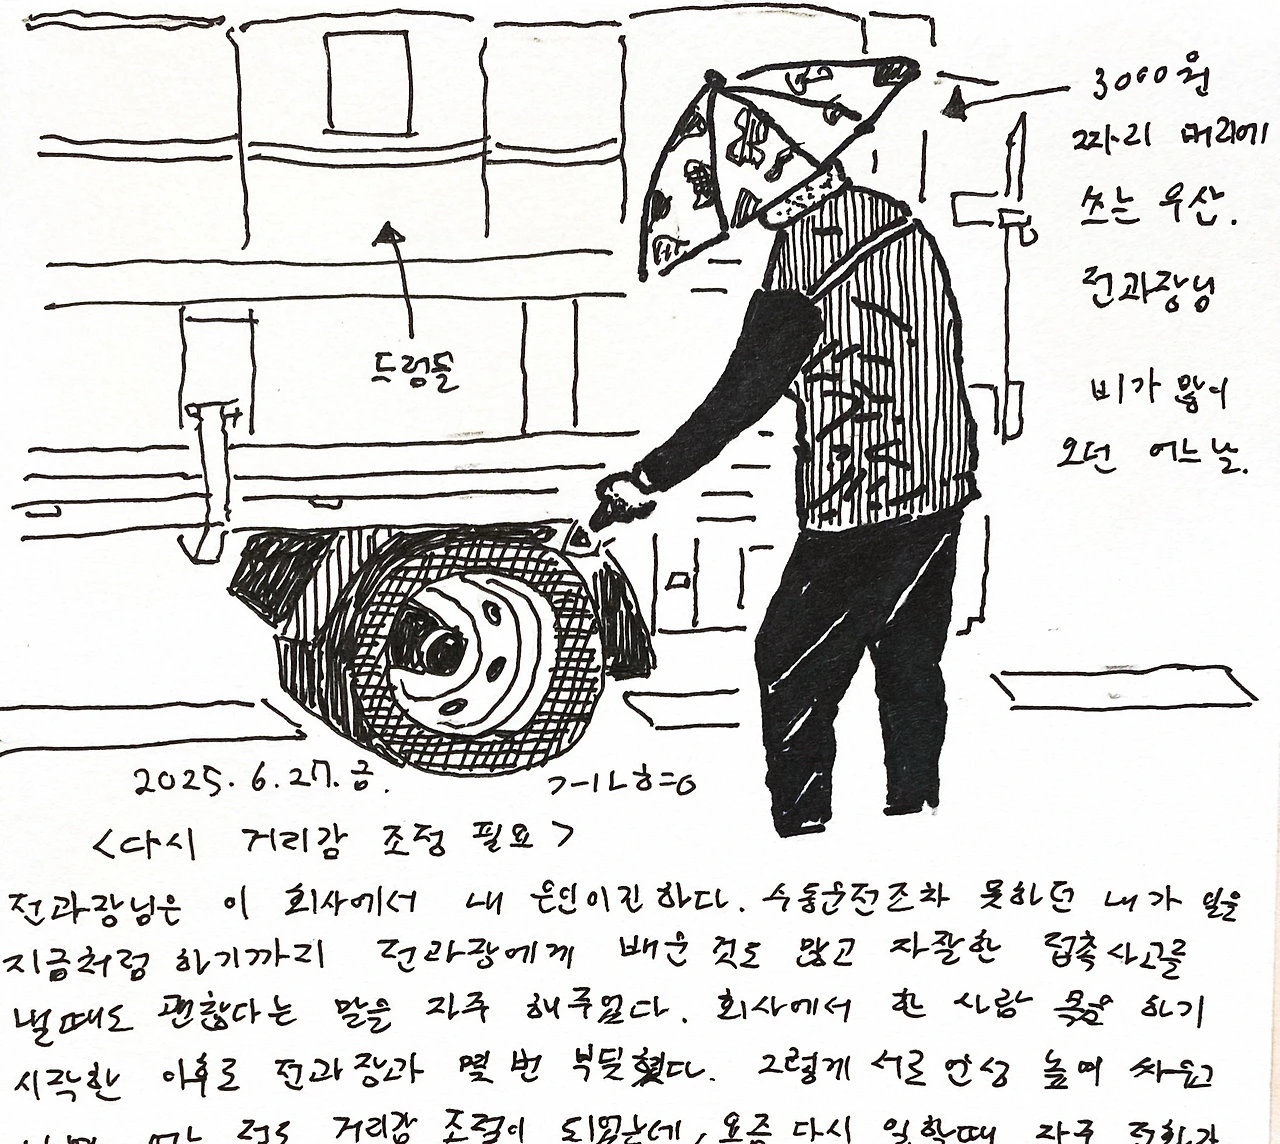 3000원
짜리 머리에
쓰는 우산.
전과장님
비가 많이
오던 어느날.
드럼통
2025. 6. 27. 금.
ㄱㅣㄴㅎㅡㅇ
<다시 거리감 조정 필요>
전과장님은 이 회사에서 내 은인이긴하다. 수동운전조차 못하던 내가 일을
지금처럼 하기까지 전과장에게 배운 것도 많고 자잘한 접촉사고를
낼때도 괜찮다는 말을 자주 해주었다. 회사에서 한 사람 몫을 하기
시작한 이후로 전과장과 몇 번 부딪혔다. 그렇게 서로 언성 높여 싸우고
거리감 조절이 되었는데, 요즘 다시 일할때 자주 전화가